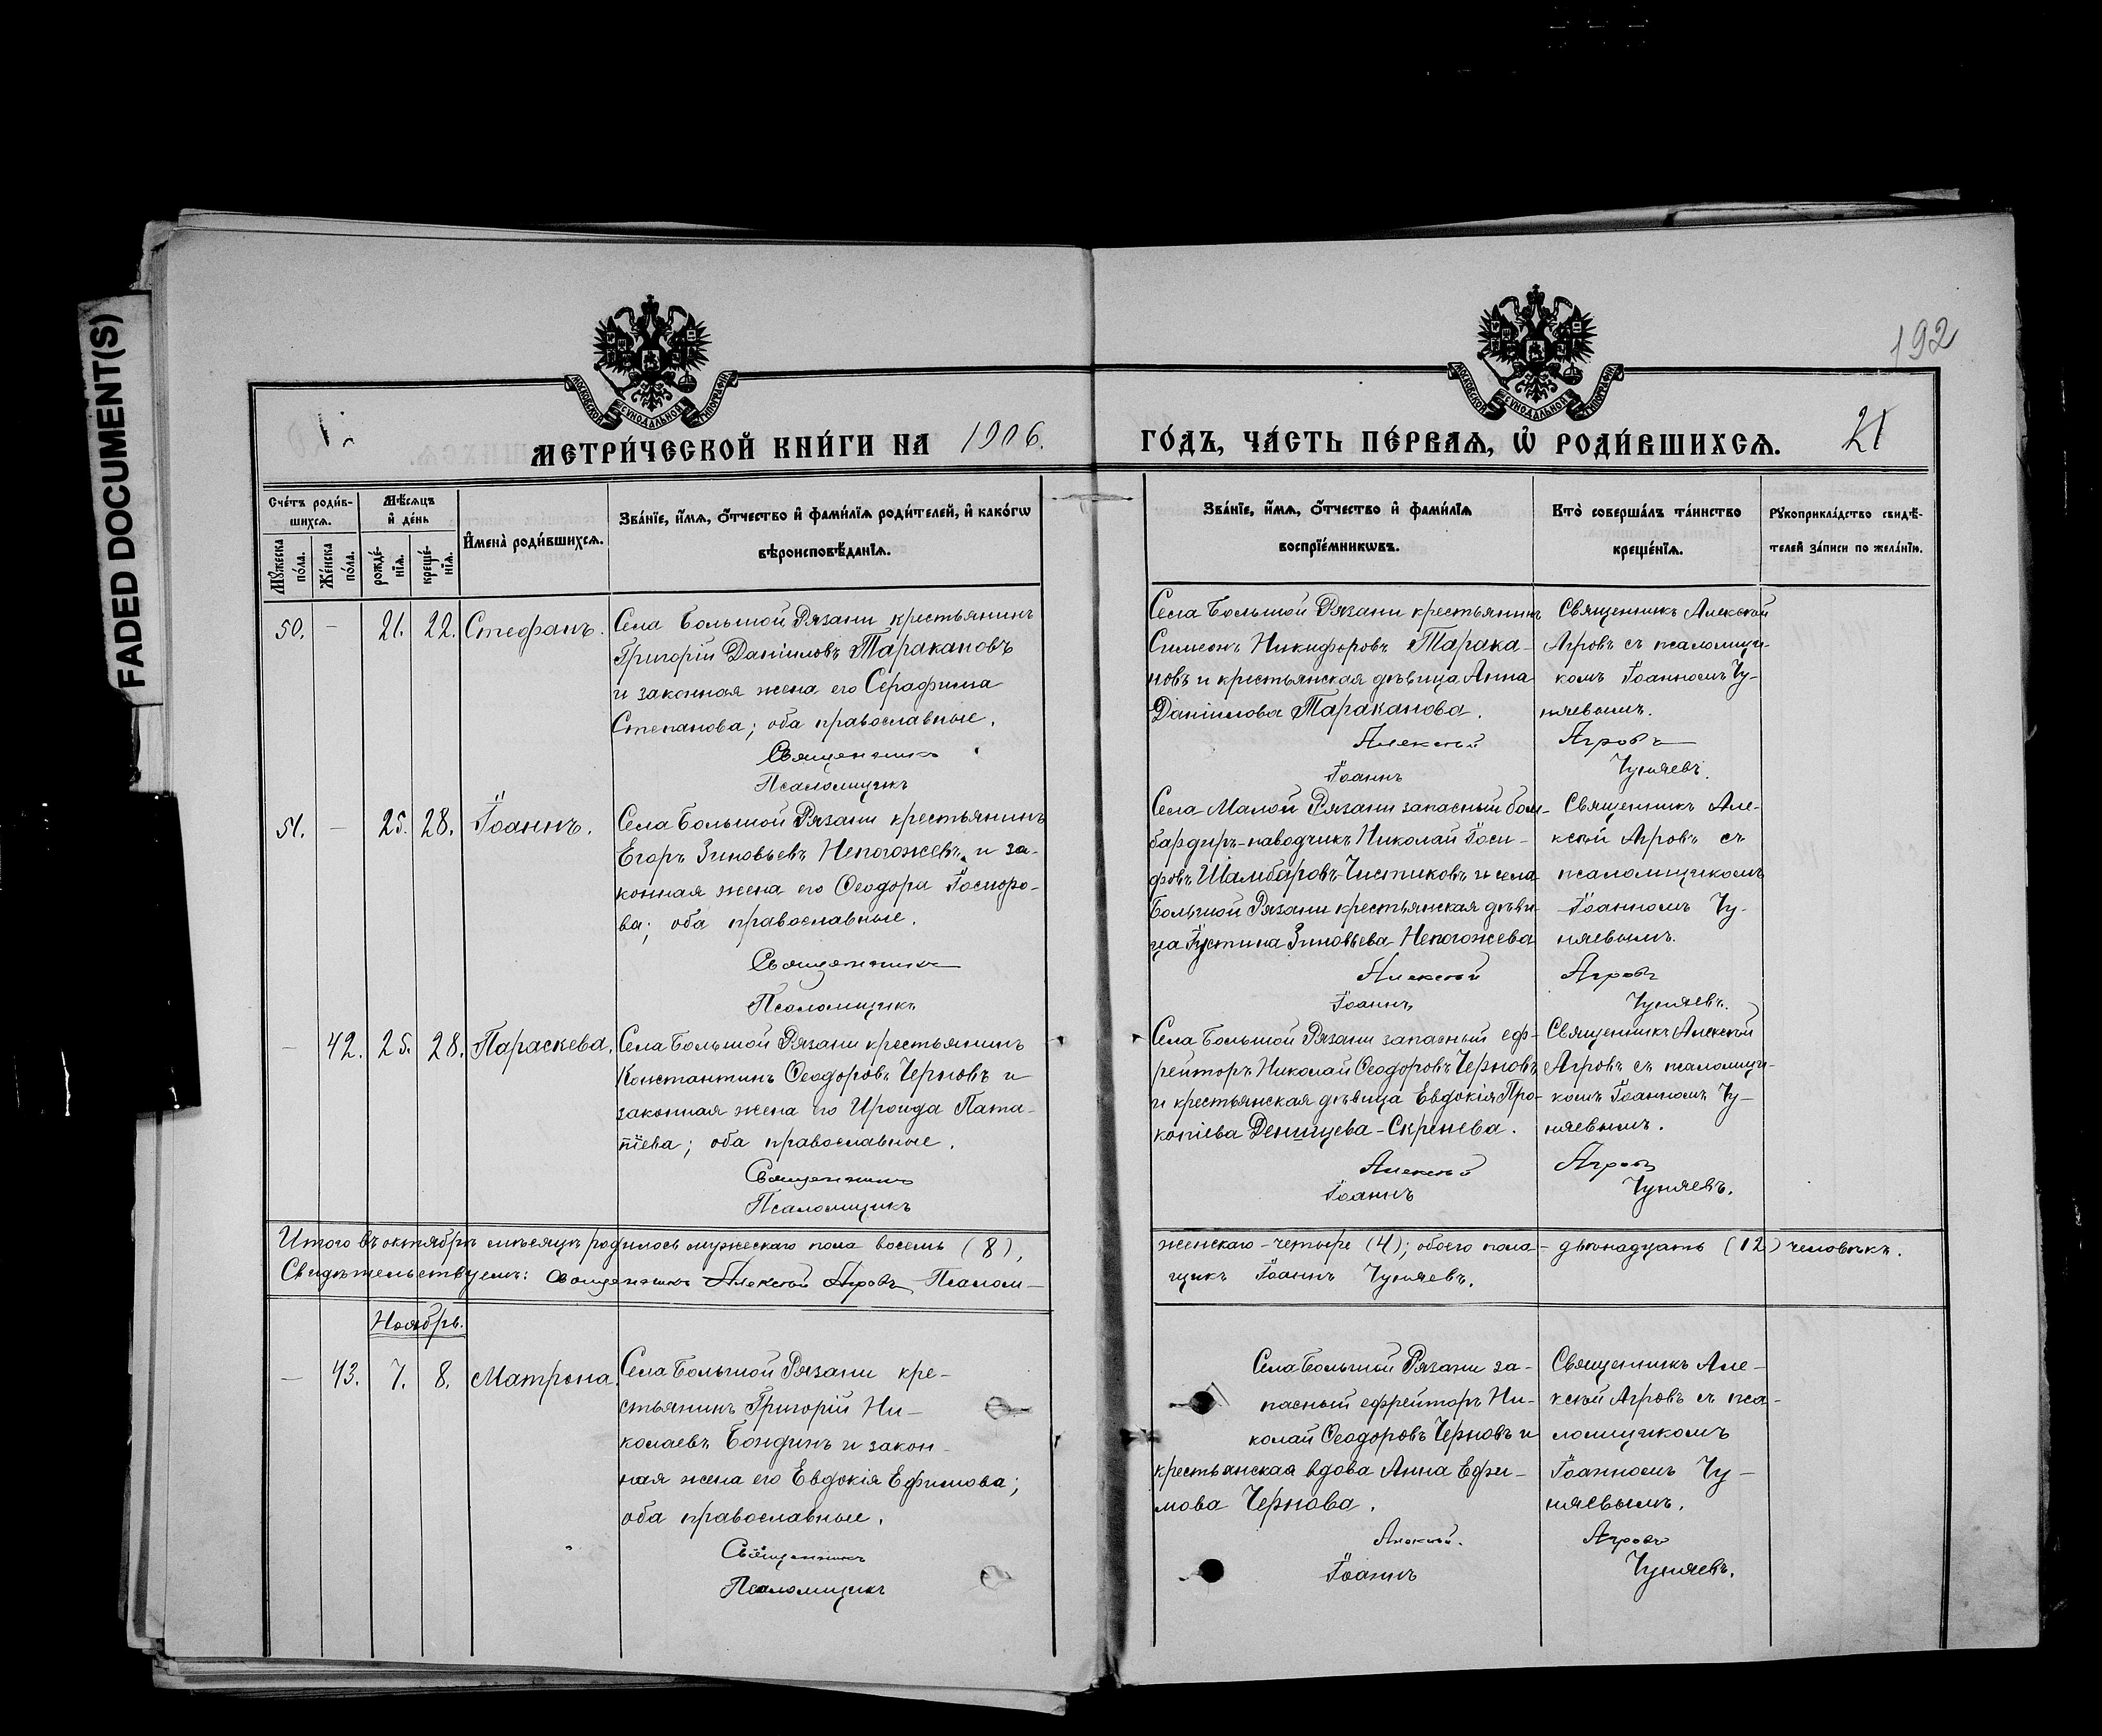 FADED DOCUMENT(S)
192
МОСКОВСКОЙ СУНОДАЛЬНОЙ ТИПОГРАФІИ
МОСКОВСКОЙ СУНОДАЛЬНОЙ ТИПОГРАФІИ
МЕТРИ́ЧЕСКОЙ КНИ́ГИ НА 1906.
ГО́ДЪ, ЧА́СТЬ ПЕ́РВАѦ, Ѡ҆ РОДИ́ВШИХСѦ. 21
Сче́тъ роди́в-
шихсѧ.
Мѣ́сѧцъ
и҆ де́нь
Мꙋ́жеска по́ла.
Же́нска по́ла.
рожде́-
нїѧ.
креще́-
нїѧ.
И҆мена̀ роди́вшихсѧ.
Зва́нїе, и҆́мѧ, ѻ҆́тчество и҆ фами́лїѧ роди́телей, и҆ како́гѡ
вѣроисповѣ́данїѧ.
Зва́нїе, и҆́мѧ, ѻ҆́тчество и҆ фами́лїѧ
воспрїе́мникѡвъ.
Кто̀ соверша́лъ та́инство
креще́нїѧ.
Рꙋкоприкла́дство свидѣ́-
телей за́писи по жела́нїю.
50. — 21. 22. Стефанъ.
Села Большой Рязани крестьянинъ
Григорій Даніиловъ Таракановъ
и законная жена его Серафима
Степанова; оба православные.
Священникъ
Псаломщикъ
Села Большой Рязани крестьянинъ
Симеонъ Никифоровъ Тарака-
новъ и крестьянская дѣвица Анна
Даніилова Тараканова.
Алексѣй
Іоаннъ
Священникъ Алексѣй
Агровъ съ псаломщи-
комъ Іоанномъ Чу-
няевымъ.
Агровъ
Чуняевъ.
51. — 25. 28. Іоаннъ.
Села Большой Рязани крестьянинъ
Егоръ Зиновьевъ Непогожевъ и за-
конная жена его Ѳеодора Іоси­фо-
ва; оба православные.
Священникъ
Псаломщикъ
Села Малой Рязани запасный бом-
бардиръ-наводчикъ Николай Іоси-
фовъ Шамбаровъ-Чистиковъ и села
Большой Рязани крестьянская дѣви-
ца Іустина Зиновьева Непогожева
Алексѣй
Іоаннъ
Священникъ Але-
ксѣй Агровъ съ
псаломщикомъ
Іоанномъ Чу-
няевымъ.
Агровъ
Чуняевъ.
— 42. 25. 28. Параскева.
Села Большой Рязани крестьянинъ
Константинъ Ѳеодоровъ Черновъ и
законная жена его Ироида Пата-
піева; оба православные.
Священникъ
Псаломщикъ
Села Большой Рязани запасный еф-
рейторъ Николай Ѳеодоровъ Черновъ
и крестьянская дѣвица Евдокія Про-
копіева Денищева-Скренева.
Алексѣй
Іоаннъ
Священникъ Алексѣй
Агровъ съ псаломщи-
комъ Іоанномъ Чу-
няевымъ.
Агровъ
Чуняевъ.
Итого въ октябрѣ мѣсяцѣ родилось мужескаго пола восемь (8),
женскаго — четыре (4); обоего пола — двѣнадцать (12) человѣкъ.
Свидѣтельствуемъ: Священникъ Алексѣй Агровъ Псалом-
щикъ Іоаннъ Чуняевъ.
Ноябрь.
— 43. 7. 8. Матрона.
Села Большой Рязани кре-
стьянинъ Григорій Ни-
колаевъ Бондинъ и закон-
ная жена его Евдокія Ефимова;
оба православные.
Священникъ
Псаломщикъ
Села Большой Рязани за-
пасный ефрейторъ Ни-
колай Ѳеодоровъ Черновъ и
крестьянская вдова Анна Ефи-
мова Чернова.
Алексѣй.
Іоаннъ
Священникъ Але-
ксѣй Агровъ съ пса-
ломщикомъ
Іоанномъ Чу-
няевымъ.
Агровъ
Чуняевъ.